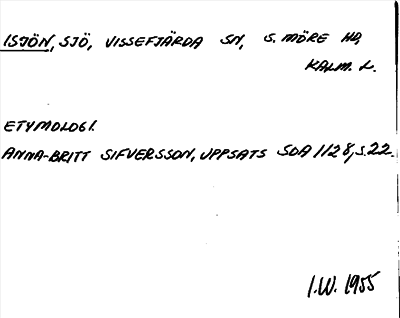 ISJÖN, SJÖ, VISSEFJÄRDA SN, S. MÖRE HD,
KALM. L.
ETYMOLOGI.
ANNA-BRITT SIFVERSSON, UPPSATS SOA 1128, S.22.
I.W. 1955